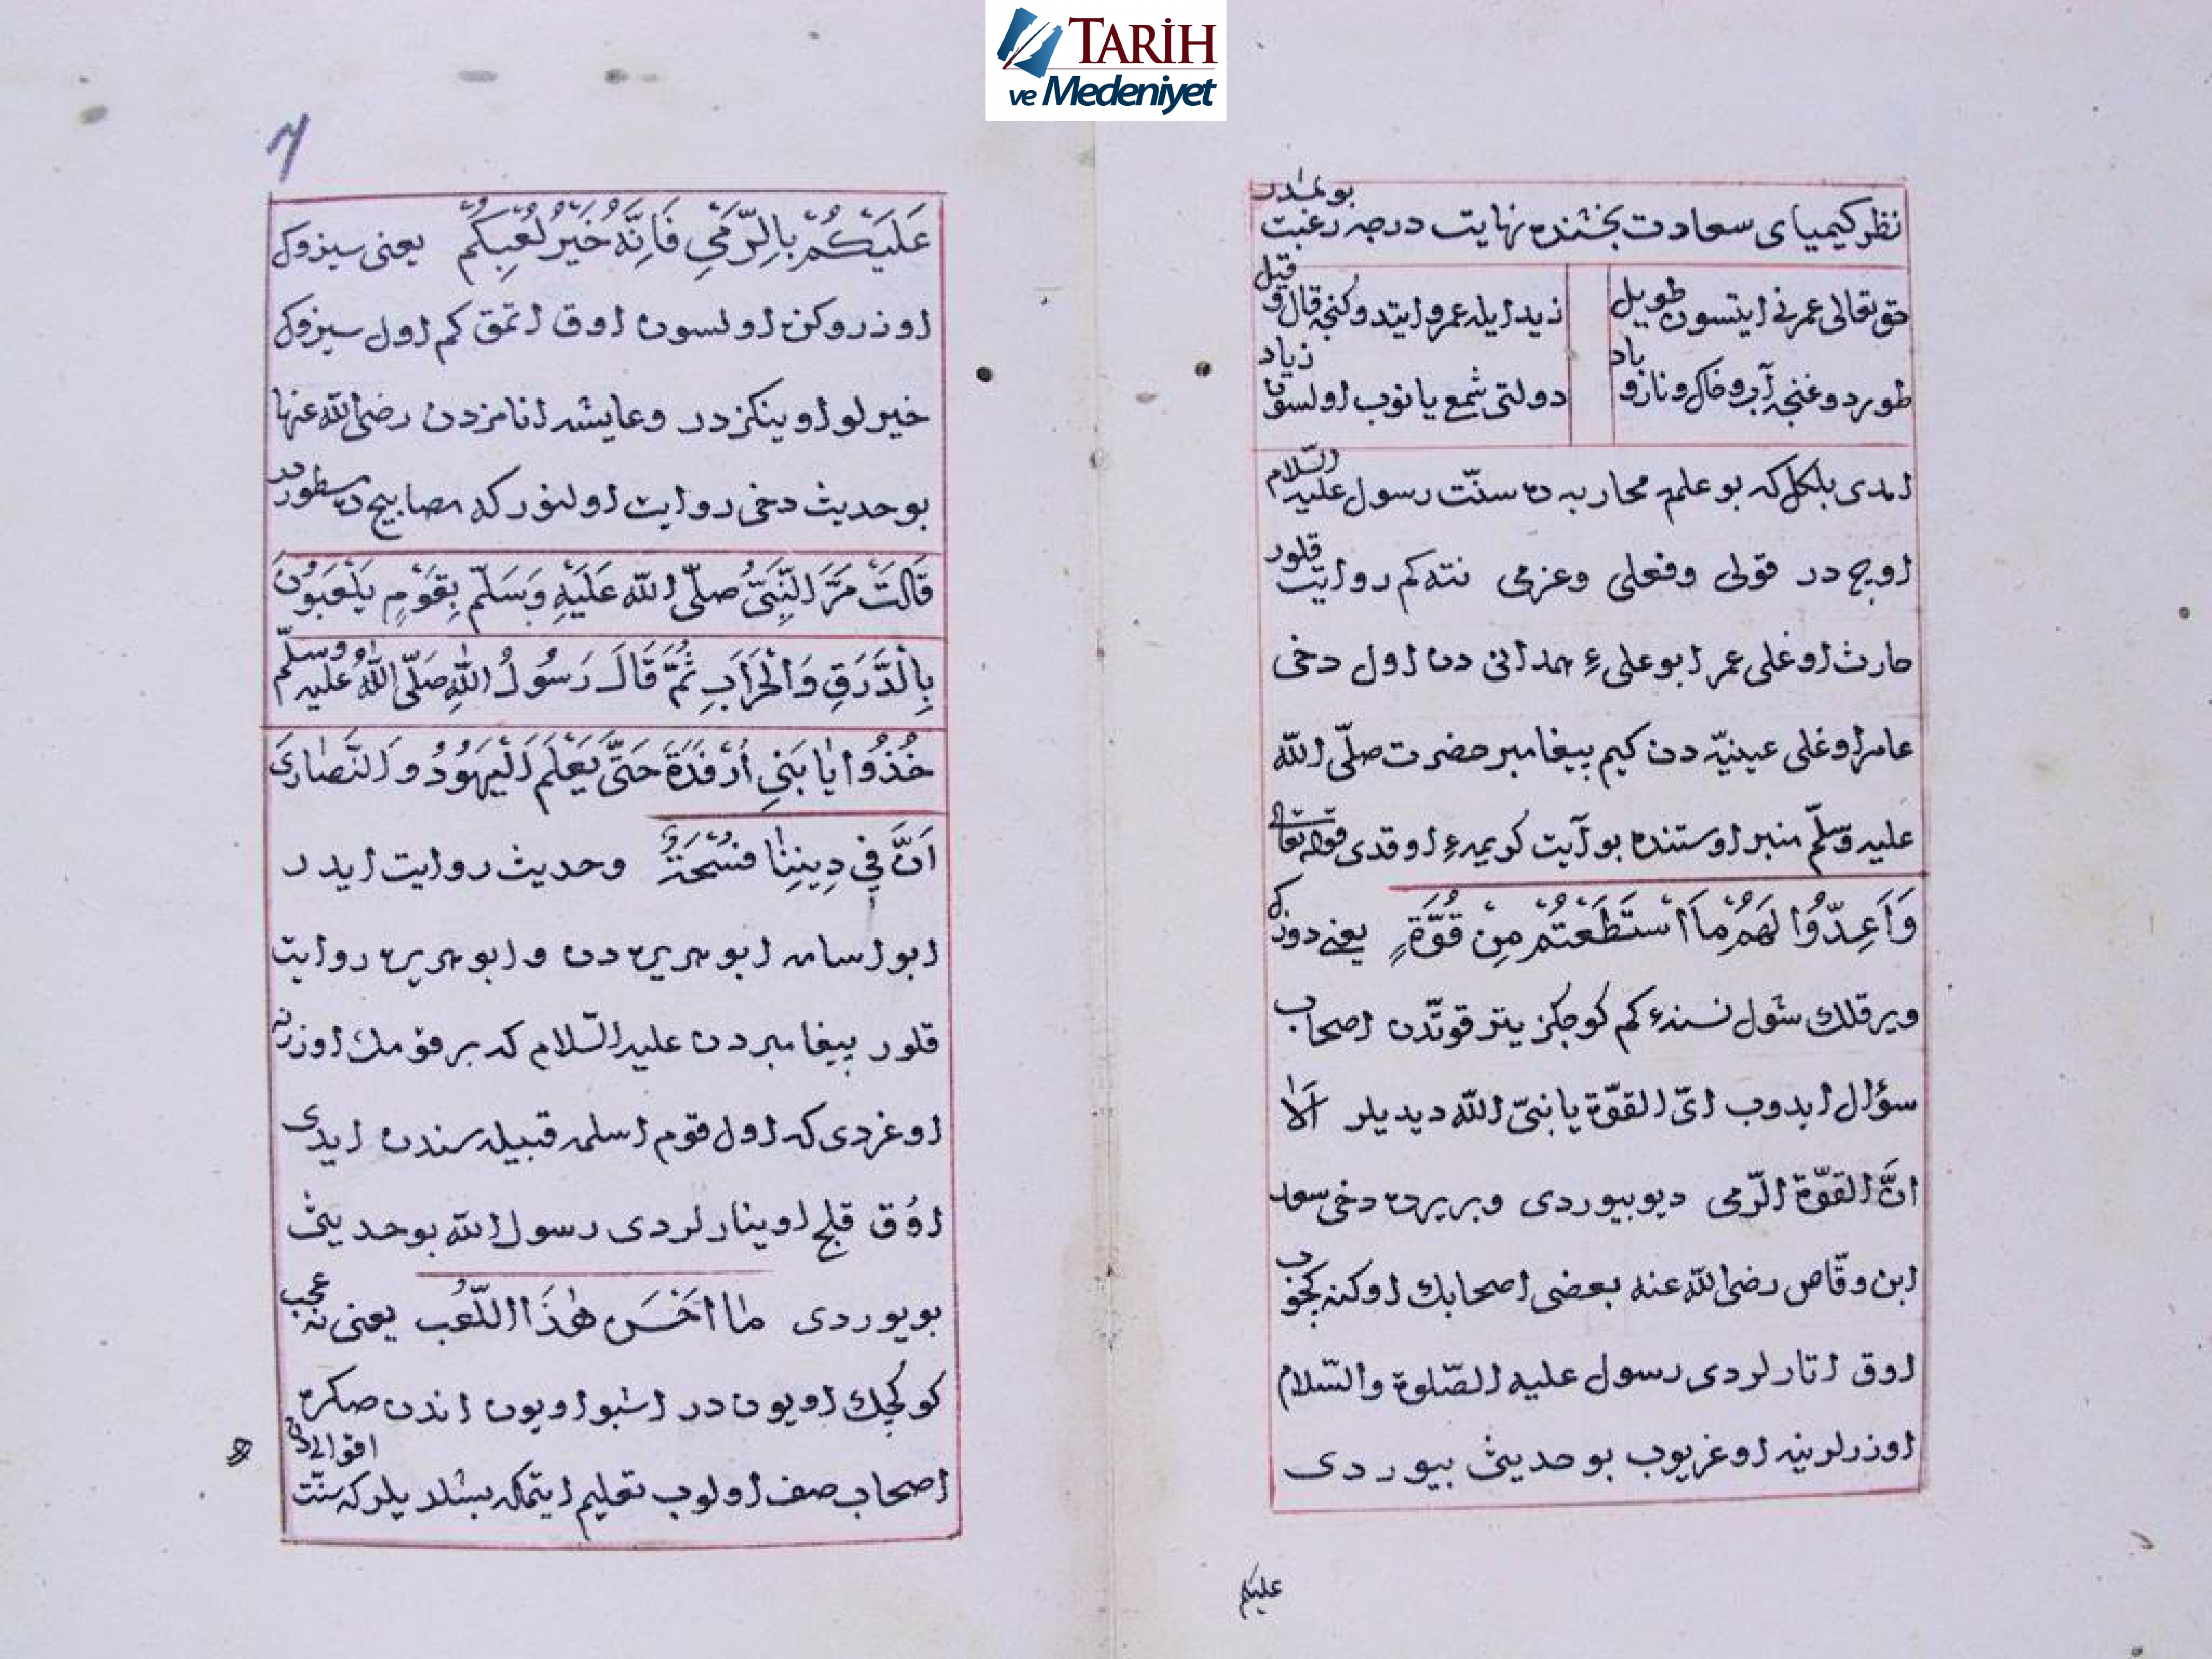 TARİH
ve Medeniyet
نظر كيمياى سعادت بخشنده نهايت درجه رغبت بولمشدر
حق تعالى عمرنى ايتسون طويل
زيد ايله عمرو ايتدوكنجه قال و قيل
طوردوغنجه آب و خاك و نار و باد
دولتى شمع يانوب اولسون زياد
امدى بلكل كه بو علم محاربه ده سنّت رسول عليه السّلام
اوچ در قولى وفعلى وعزمى نته كم روايت قلور
حارث اوغلى عمر ابو على ء همدانى دن اول دخى
عامر اوغلى عينيّه دن كيم پيغامبر حضرت صلّى الله
عليه وسلّم منبر اوستنده بو آيت كريمه ء اوقدى قوله تعالى
وَاَعِدُّوا لَهُمْ مَا اسْتَطَعْتُمْ مِنْ قُوَّةٍ يعنى دوزك
ويرقلك شول نسنه ء كم كوجكز يتر قوتّدن اصحاب
سؤال ايدوب اىّ القوّة يا نبىّ الله ديديلر اَلا
انَّ القوّة الرّمى ديو بيوردى وبريره دخى سعد
ابن وقّاص رضى الله عنه بعضى اصحابك اوكنه كچوب
اوق اتارلردى رسول عليه الصّلوة والسّلام
اوزرلرينه اوغريوب بو حديث بيوردى
عليكم
٦
عَلَيْكُمْ بِالرَّمْىِ فَاِنَّهُ خَيْرُ لُعْبِكُمْ يعنى سيزوك
اوزروكزه اولسون اوق اتمق كم اول سيزوك
خيرلو اوينكزدر وعايشه انامزدن رضى الله عنها
بو حديث دخى روايت اولنور كه مصابيح ده مسطوردر
قَالَتْ مَرَّ النَّبِىُّ صلّى الله عَلَيْهِ وَسَلَّمْ بِقَوْمٍ يَلْعَبُونَ
بِالدَّرَقِ وَالْحَرَابِ ثُمَّ قَالَ رَسُولُ اللهِ صَلَّى اللهُ عليه وسلّم
خُذُوا يَا بَنِى اَرْفَدَةَ حَتَّى يَعْلَمَ الْيَهُودُ وَالنَّصَارَى
اَنَّ فِى دِينِنَا فُسْحَةً وحديث روايت ايدر
ابو اسامه ابو هريره دن و ابو هريره روايت
قلور پيغامبردن عليه السّلام كه بر قومك اوزرنه
اوغردى كه اول قوم اسلم قبيله سندن ايدى
اوق قلج اوينارلردى رسول الله بو حديث
بويوردى مَا اَحْسَن هٰذَا اللّعُب يعنى نه عجب
كوكچك اويون در اشبو اويون اندن صكره
اصحاب صف اولوب تعليم ايتمكه بشلديلر كه سنّت اقوالى